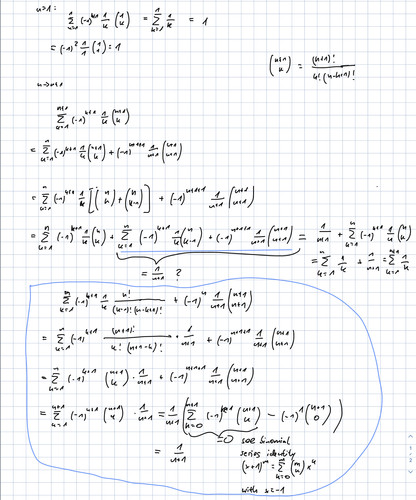 n=1:
\sum_{k=1}^{1} (-1)^{k+1} \frac{1}{k} \binom{1}{k} = \sum_{k=1}^{1} \frac{1}{k} = 1
= (-1)^2 \frac{1}{1} \binom{1}{1} = 1
\binom{n+1}{k} = \frac{(n+1)!}{k! (n-k+1)!}
n→n+1
\sum_{k=1}^{n+1} (-1)^{k+1} \frac{1}{k} \binom{n+1}{k}
= \sum_{k=1}^{n} (-1)^{k+1} \frac{1}{k} \binom{n+1}{k} + (-1)^{n+1+1} \frac{1}{n+1} \binom{n+1}{n+1}
= \sum_{k=1}^{n} (-1)^{k+1} \frac{1}{k} \left[ \binom{n}{k} + \binom{n}{k-1} \right] + (-1)^{n+1+1} \frac{1}{n+1} \binom{n+1}{n+1}
= \sum_{k=1}^{n} (-1)^{k+1} \frac{1}{k} \binom{n}{k} + \sum_{k=1}^{n} (-1)^{k+1} \frac{1}{k} \binom{n}{k-1} + (-1)^{n+1+1} \frac{1}{n+1} \binom{n+1}{n+1} = \frac{1}{n+1} + \sum_{k=1}^{n} (-1)^{k+1} \frac{1}{k} \binom{n}{k}
= \sum_{k=1}^{n} \frac{1}{k} + \frac{1}{n+1} = \sum_{k=1}^{n+1} \frac{1}{k}
= \frac{1}{n+1} ?
\sum_{k=1}^{n} (-1)^{k+1} \frac{1}{k} \frac{n!}{(k-1)! (n-k+1)!} + (-1)^{n} \frac{1}{n+1} \binom{n+1}{n+1}
= \sum_{k=1}^{n} (-1)^{k+1} \frac{(n+1)!}{k! (n+1-k)!} \cdot \frac{1}{n+1} + (-1)^{n+1+1} \frac{1}{n+1} \binom{n+1}{n+1}
= \sum_{k=1}^{n} (-1)^{k+1} \binom{n+1}{k} \cdot \frac{1}{n+1} + (-1)^{n+1+1} \frac{1}{n+1} \binom{n+1}{n+1}
= \sum_{k=1}^{n+1} (-1)^{k+1} \binom{n+1}{k} \cdot \frac{1}{n+1} = \frac{1}{n+1} \left( \sum_{k=0}^{n+1} (-1)^{k+1} \binom{n+1}{k} - (-1)^1 \binom{n+1}{0} \right)
=0 see binomial
= \frac{1}{n+1} series identity
(x+1)^m = \sum_{k=0}^{m} \binom{m}{k} x^k
with x=-1